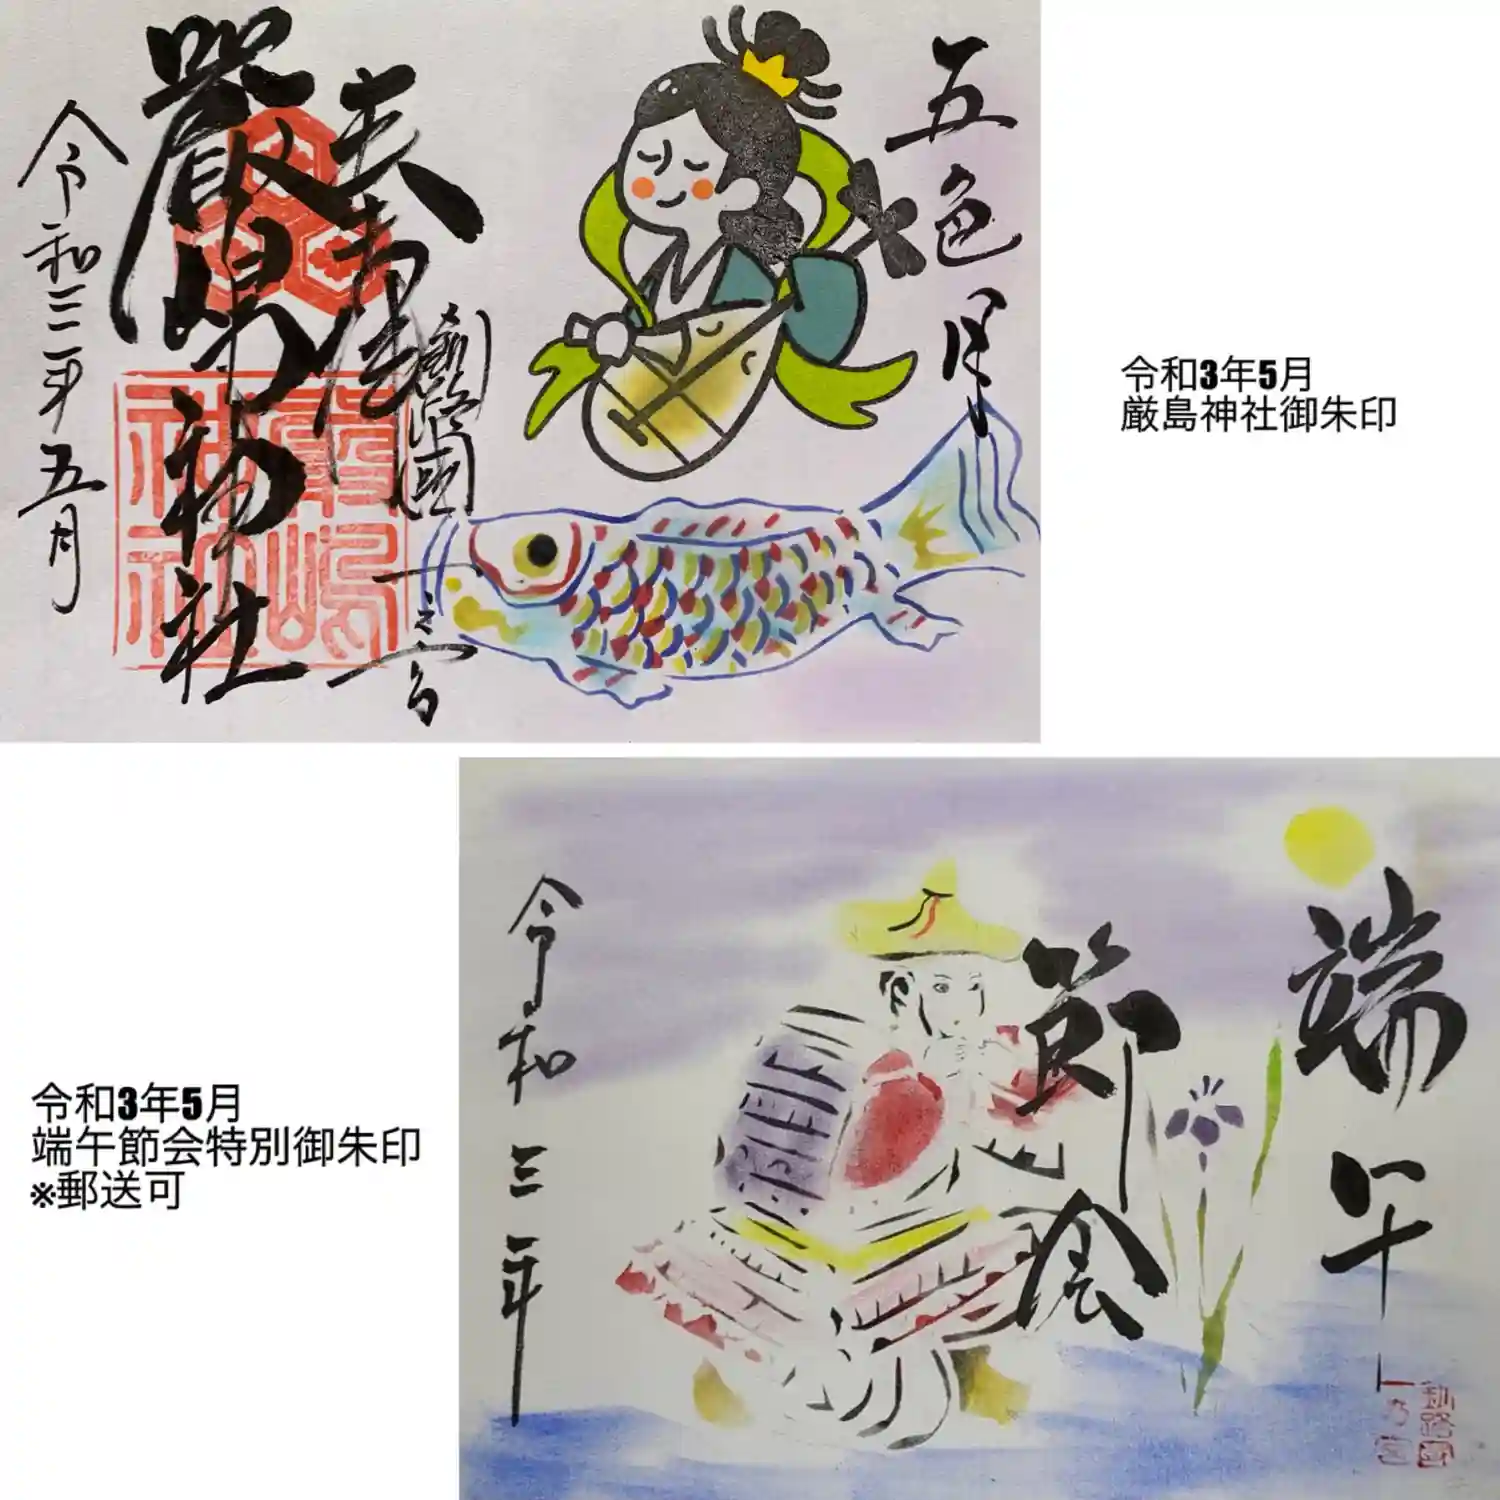 五色月
釧路國
一之宮
嚴島神社
令和三年五月
令和3年5月
厳島神社御朱印
端午
節会
令和三年
令和3年5月
端午節会特別御朱印
※郵送可